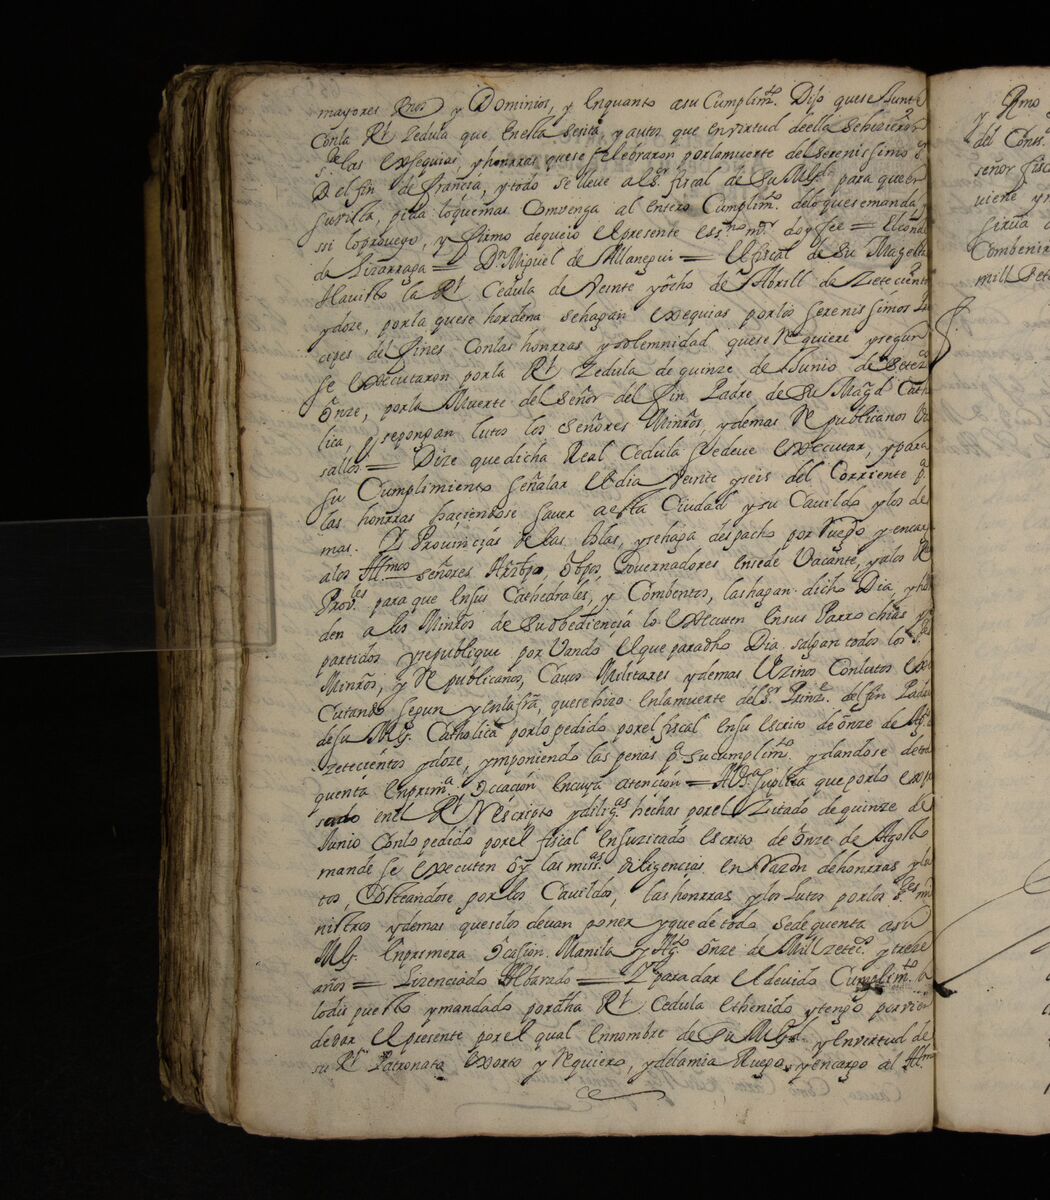 mayores Rnos y Dominios, y enquanto asu Cumplim.to Dijo quese Junte
Conla R.l Zedula que enella secita, y autos que envirtud deella sehizieron
s.re las exsequias, y honrras quese selebraron porlamuerte del serenissimo s.r
D elfin de francia, y todo se lleve al s.r fiscal de su Mg.d para que en
suvista, pida loquemas Combenga al entero Cumplim.to delo quesemanda, y a
ssi loproveyo, y firmo dequeio elpresente ess.no m.r doy fee = el conde
de Lizarraga = D.n Miguel de Allanegui = el fiscal de su Magestad
Havisto la R.l Cedula de Veinte yocho de Abrill de Zetecientos
ydoze, porla quese hordena sehagan exequias porlos serenissimos Prin
cipes delfines Conlas honrras y solemnidad quese Requiere ysegun
se executaron porla R.l Zedula de quinze de Junio de Setez.s
onze, porla Muerte del señor delfin Padre de su Mag.d Catho
lica, y seponpan lutos los señores Minros, ydemas Republicanos Va
sallos = Dize que dicha Real Cedula sedeve executar, ypara
su Cumplimiento señalar eldia Veinte yseis del Corriente p.a
las honrras haciendose saver aesta Ciudad y su Cavildo ylos de
mas. Ps Provincias delas Islas, ysehaga despacho por Ruego y encargo
alos Ill.mos señores Arzbpo, Obpos Governadores ensede Vacante, yalos RR
Prov.les para que ensus Cathedrales, y Combentos, lashagan dicho Dia, y hor
den a los Minros de suobediencia lo executen ensus Parrochias y
partidos ysepublique por Vando elque paradho Dia salgan todos los s.res
Minros, y Republicanos, Cavos Militares ydemas Vezinos Conlutos exe
Cutando segun yenla fra, quesehizo enlamuerte del s.r Prinz.e delfin Padre
desu Mg.d Catholica porlo pedido porel fiscal ensu escrito de onze de Ag.to
Zetecientos ydoze, ymponiendo las penas p.a sucumplim.to ydandose detodo
quenta enprim.a occasion encuya atencion = AV.a suplica que porlo expre
sado enel R.l Rescripto ydilig.as hechas porel Zitado de quinze de
Junio Conlo pedido porel fiscal ensuzitado escrito de onze de Agosto
mande se executen oy las mis.as diligencias en Razon dehonrras ylu
tos, costeandose porlos Cavildos, las honrras ylos lutos porlos s.res mi
nistros ydemas queselos devan poner yquedetodo sedequenta asu
Mg.d enprimera ocasion. Manila y Ag.to onze de Mill zetec.s ytreze
años = Lizenciado Albarado = Y para dar eldevido Cumplim.to a
lodispuesto ymandado pordha R.l Cedula ethenido ytengo porvien
dedar elpresente porel qual ennombre de su Mg.d y envertud de
su R.l Patronato exorto y requiero, ydelamia Ruego, y encargo al Ill.mo
y R.mo
del Cons.
señor fis
viene y
sirva
Combenir
mill Sete